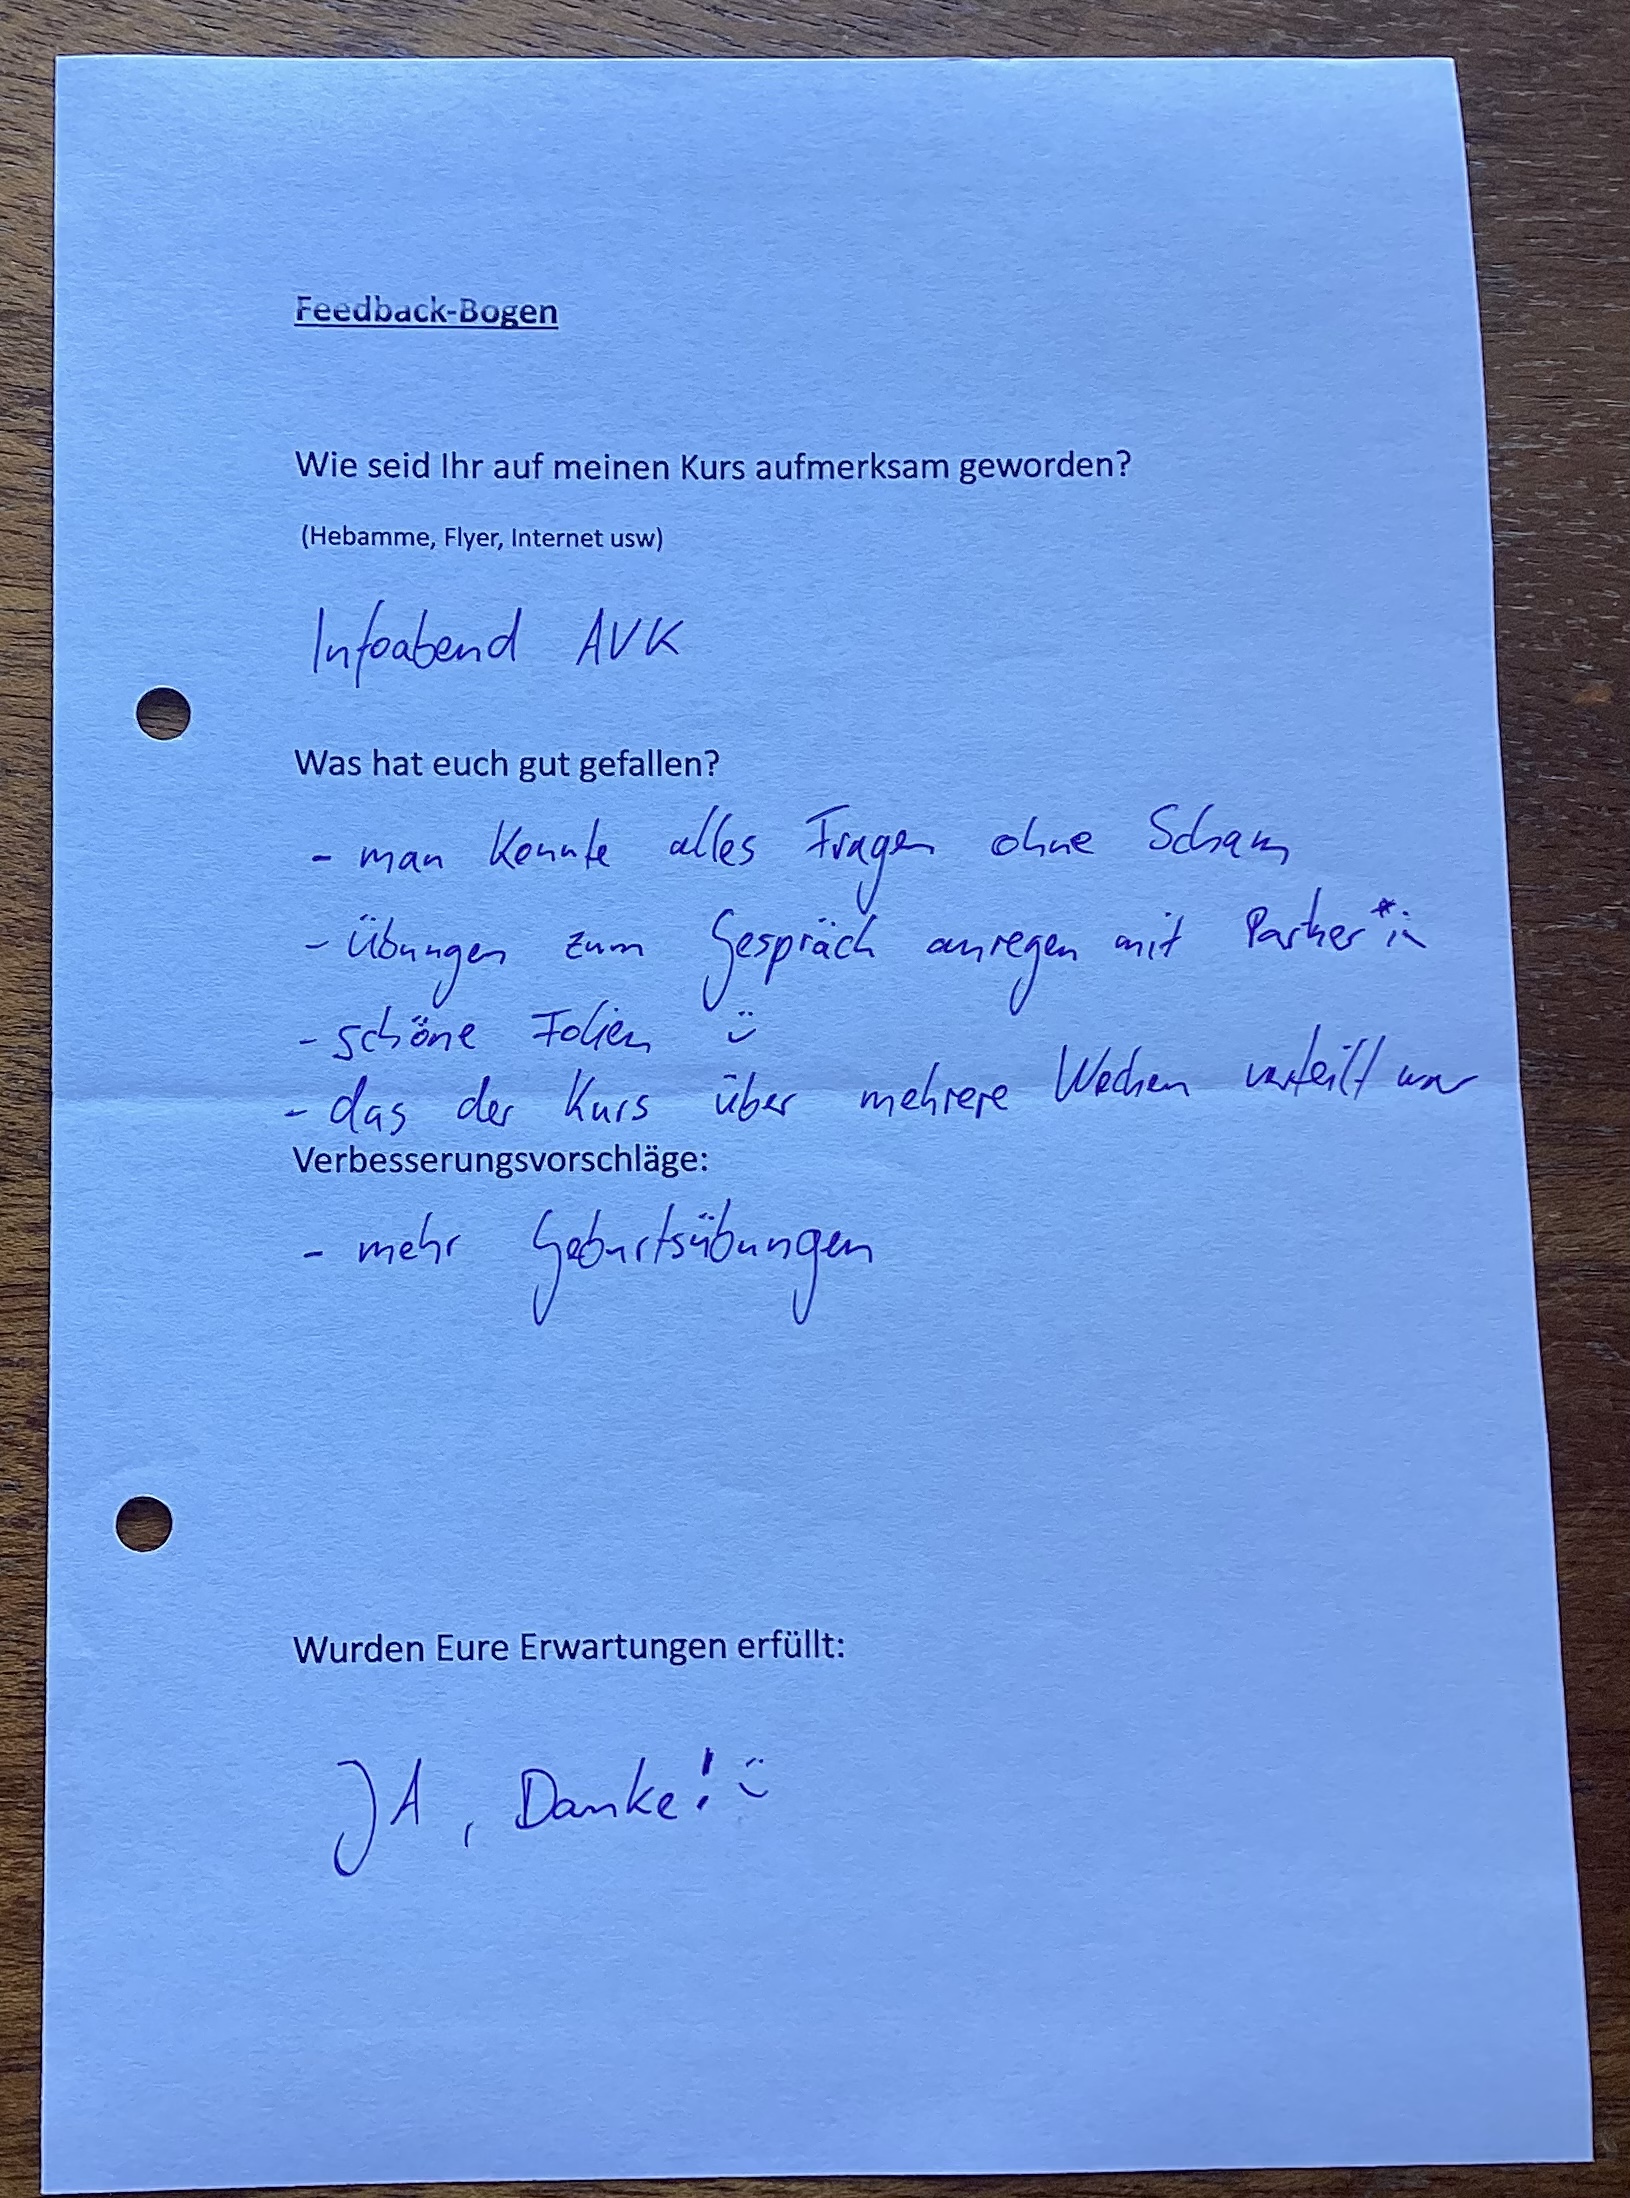 Feedback-Bogen
Wie seid Ihr auf meinen Kurs aufmerksam geworden?
(Hebamme, Flyer, Internet usw)
Infoabend AVK
Was hat euch gut gefallen?
- man konnte alles Fragen ohne Scham
- Übungen zum Gespräch anregen mit Partner*in
- schöne Folien ü
- das der Kurs über mehrere Wochen verteilt war
Verbesserungsvorschläge:
- mehr Geburtsübungen
Wurden Eure Erwartungen erfüllt:
JA, Danke! ü